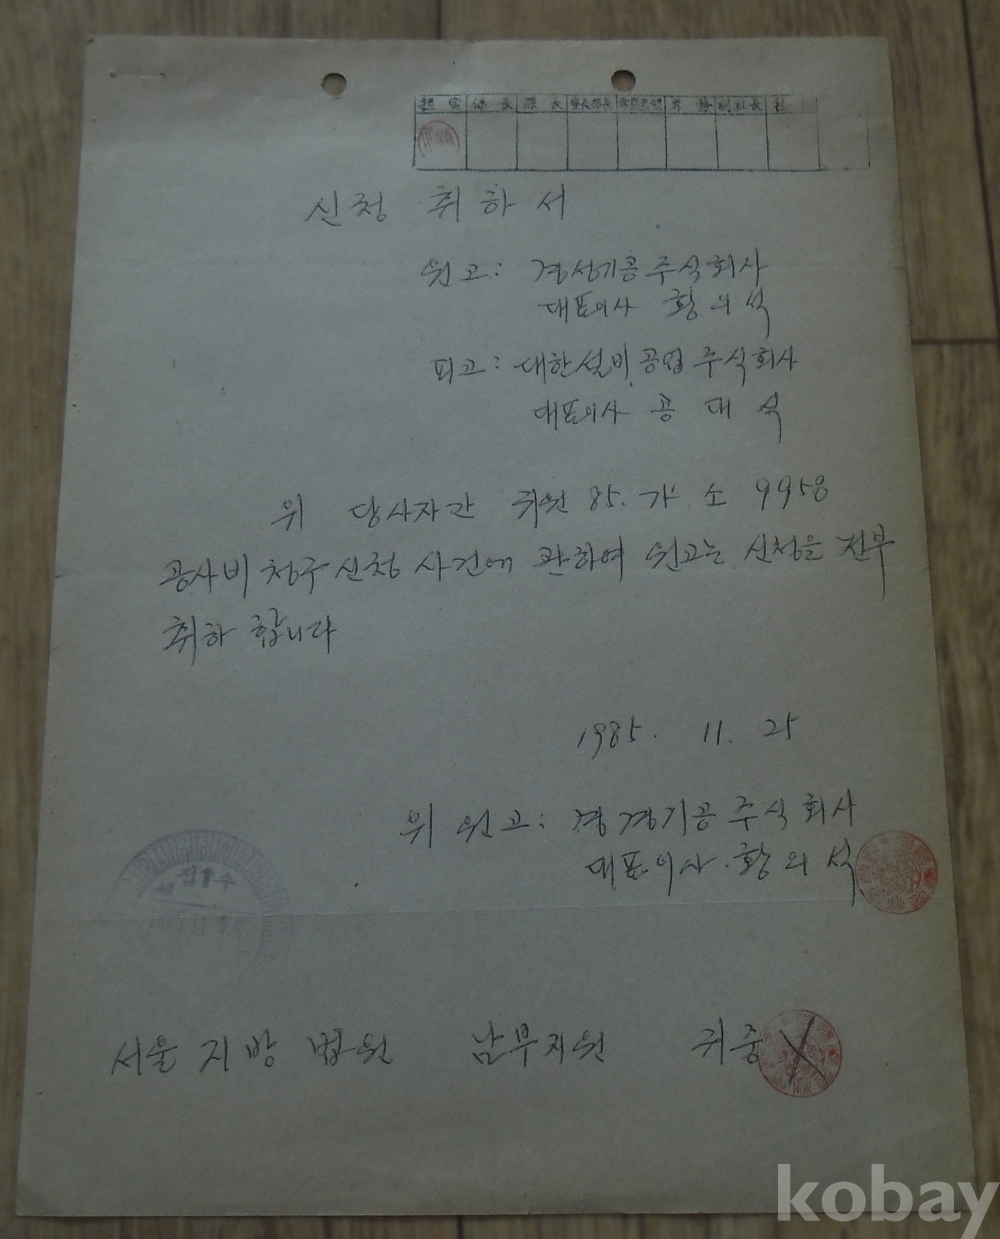 課長 副社長 社
신청 취하서
원고: 경성기공주식회사
대표이사 황의석
피고: 대한설비공업주식회사
대표이사 공대석
위 당사자간 귀원 85. 가 소 9958
공사비 청구 신청 사건에 관하여 원고는 신청을 전부
취하 합니다
1985. 11. 25
위 원고: 경경기공주식회사
대표이사 황의석
접수
서울지방법원 남부지원 귀중
kobay